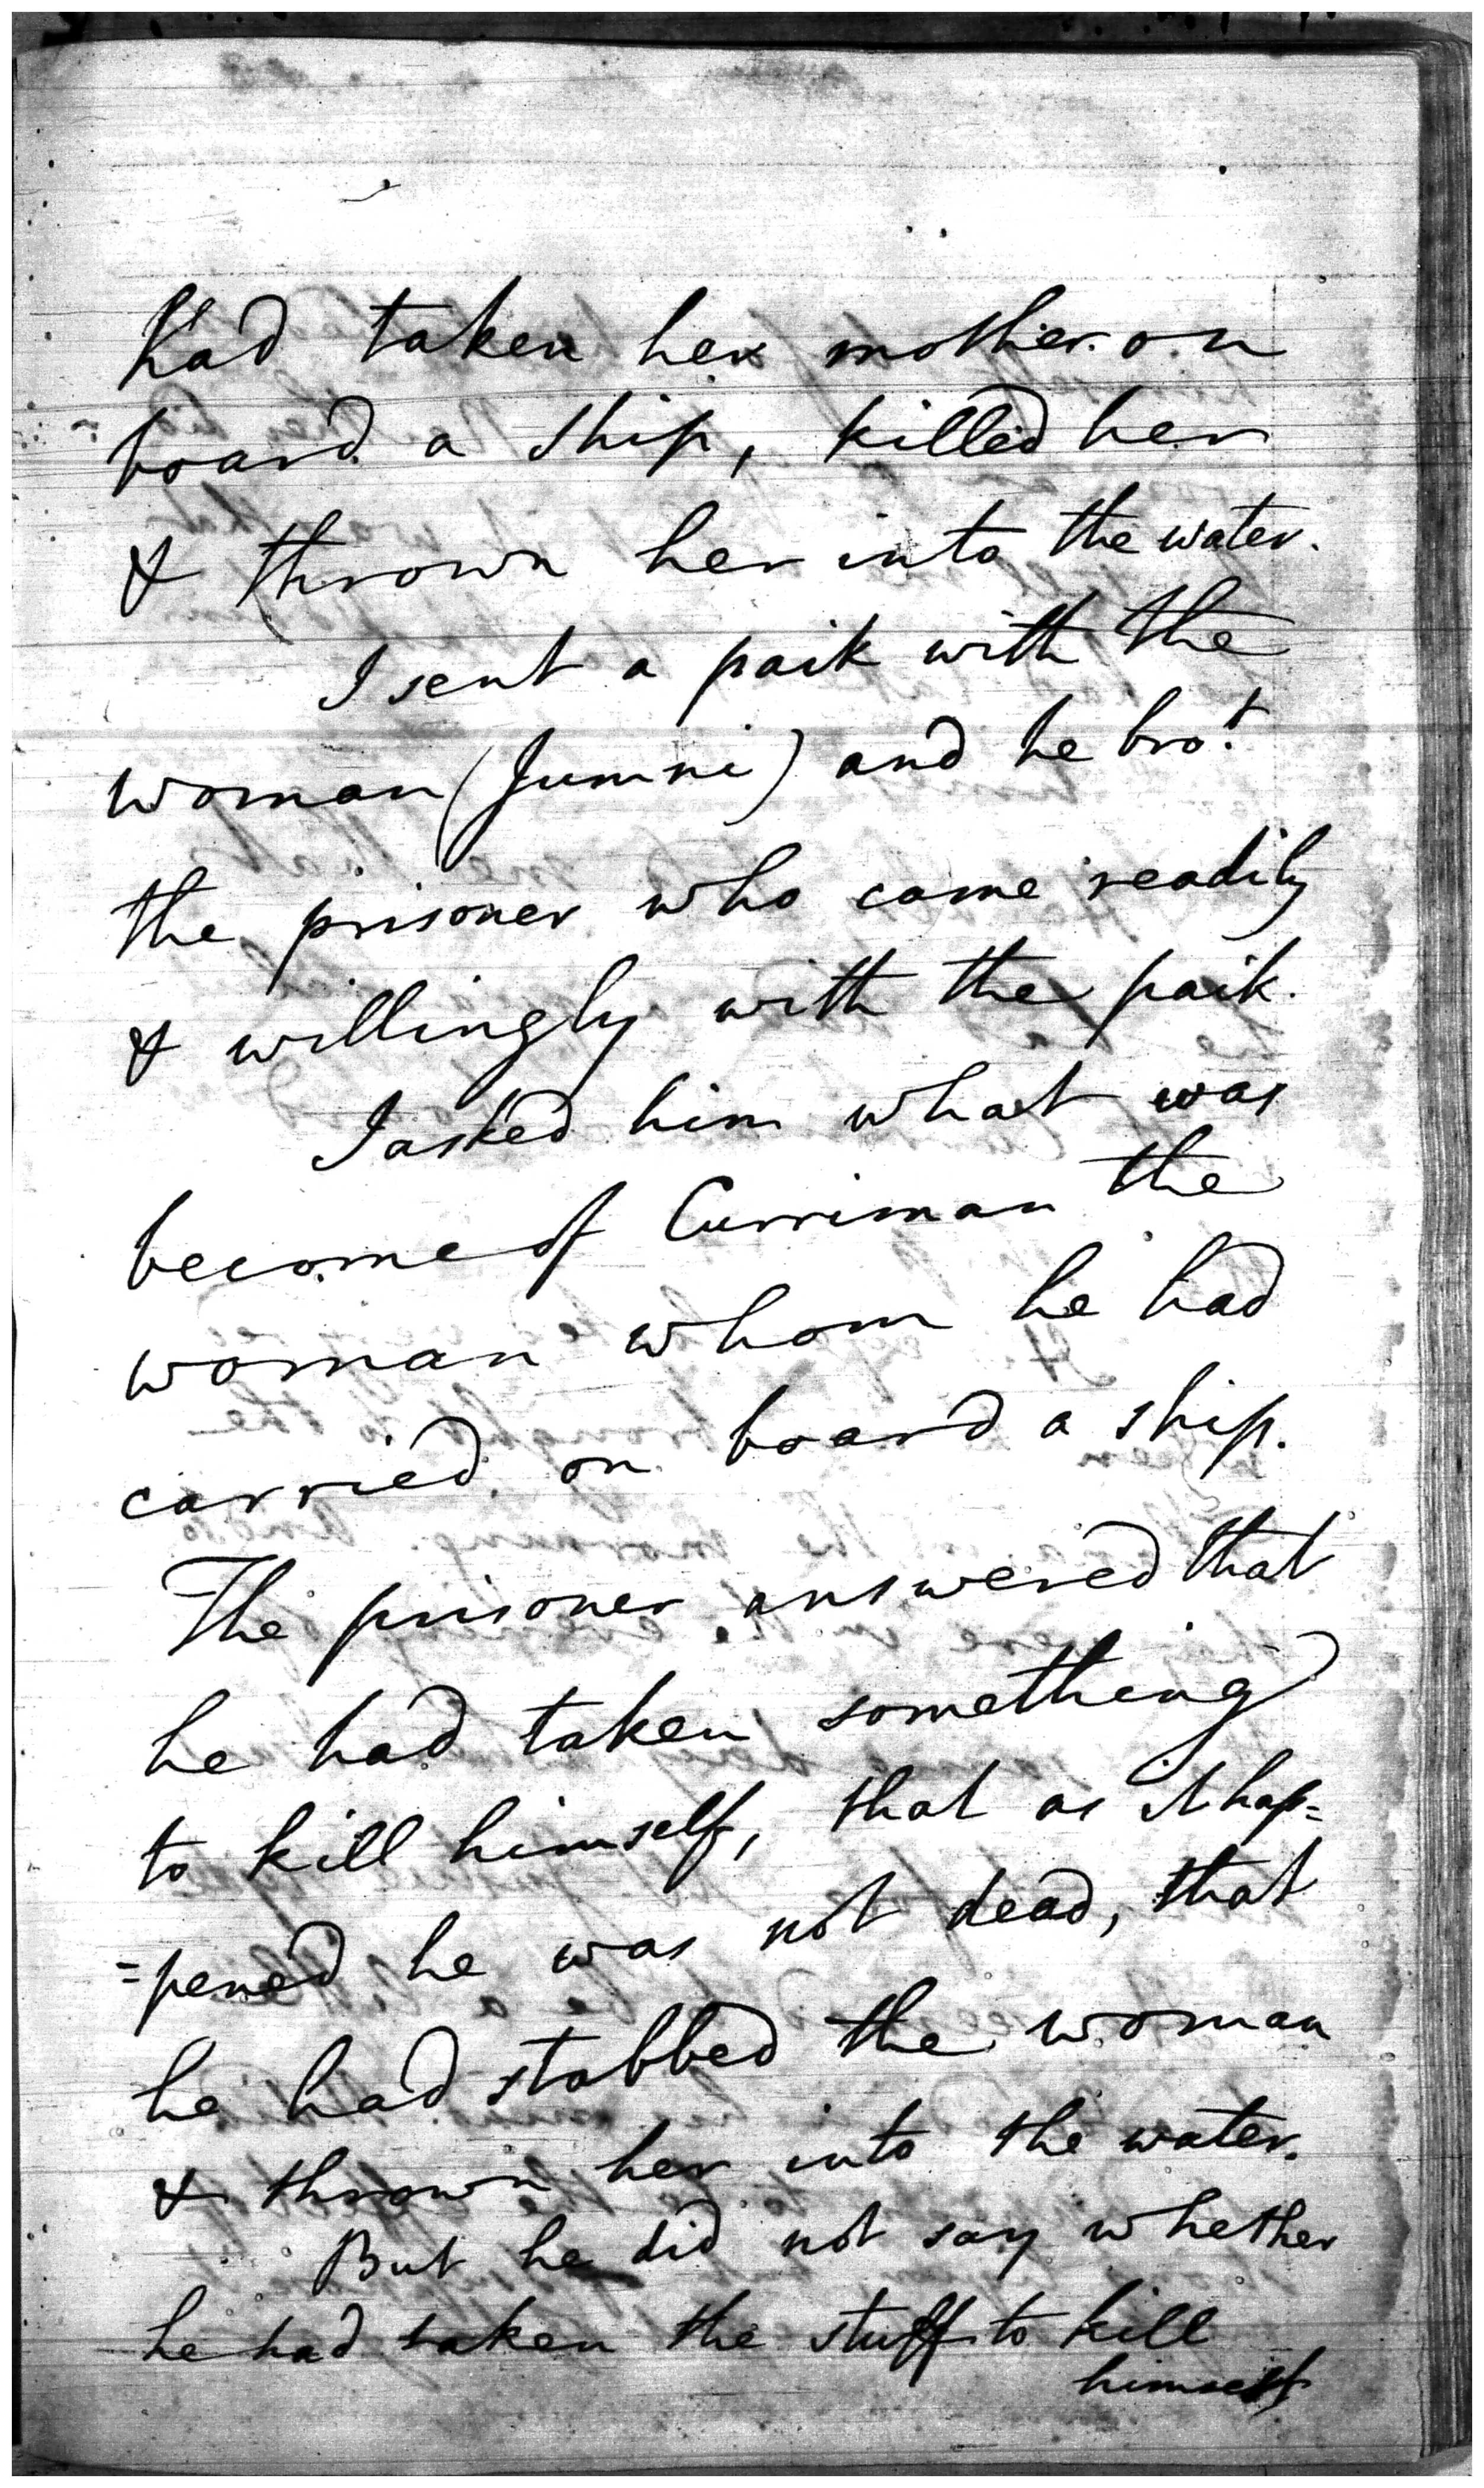 had taken her mother on
board a ship, killed her
& thrown her into the water.
I sent a paik with the
woman (Jumni) and he bro.t
the prisoner who came readily
& willingly with the paik.
I asked him what was
become of Curriman the
woman whom he had
carried on board a ship.
The prisoner answered that
he had taken something
to kill himself, that as it hap=
=pened he was not dead, that
he had stabbed the woman
& thrown her into the water.
But he did not say whether
he had taken the stuff to kill
himself